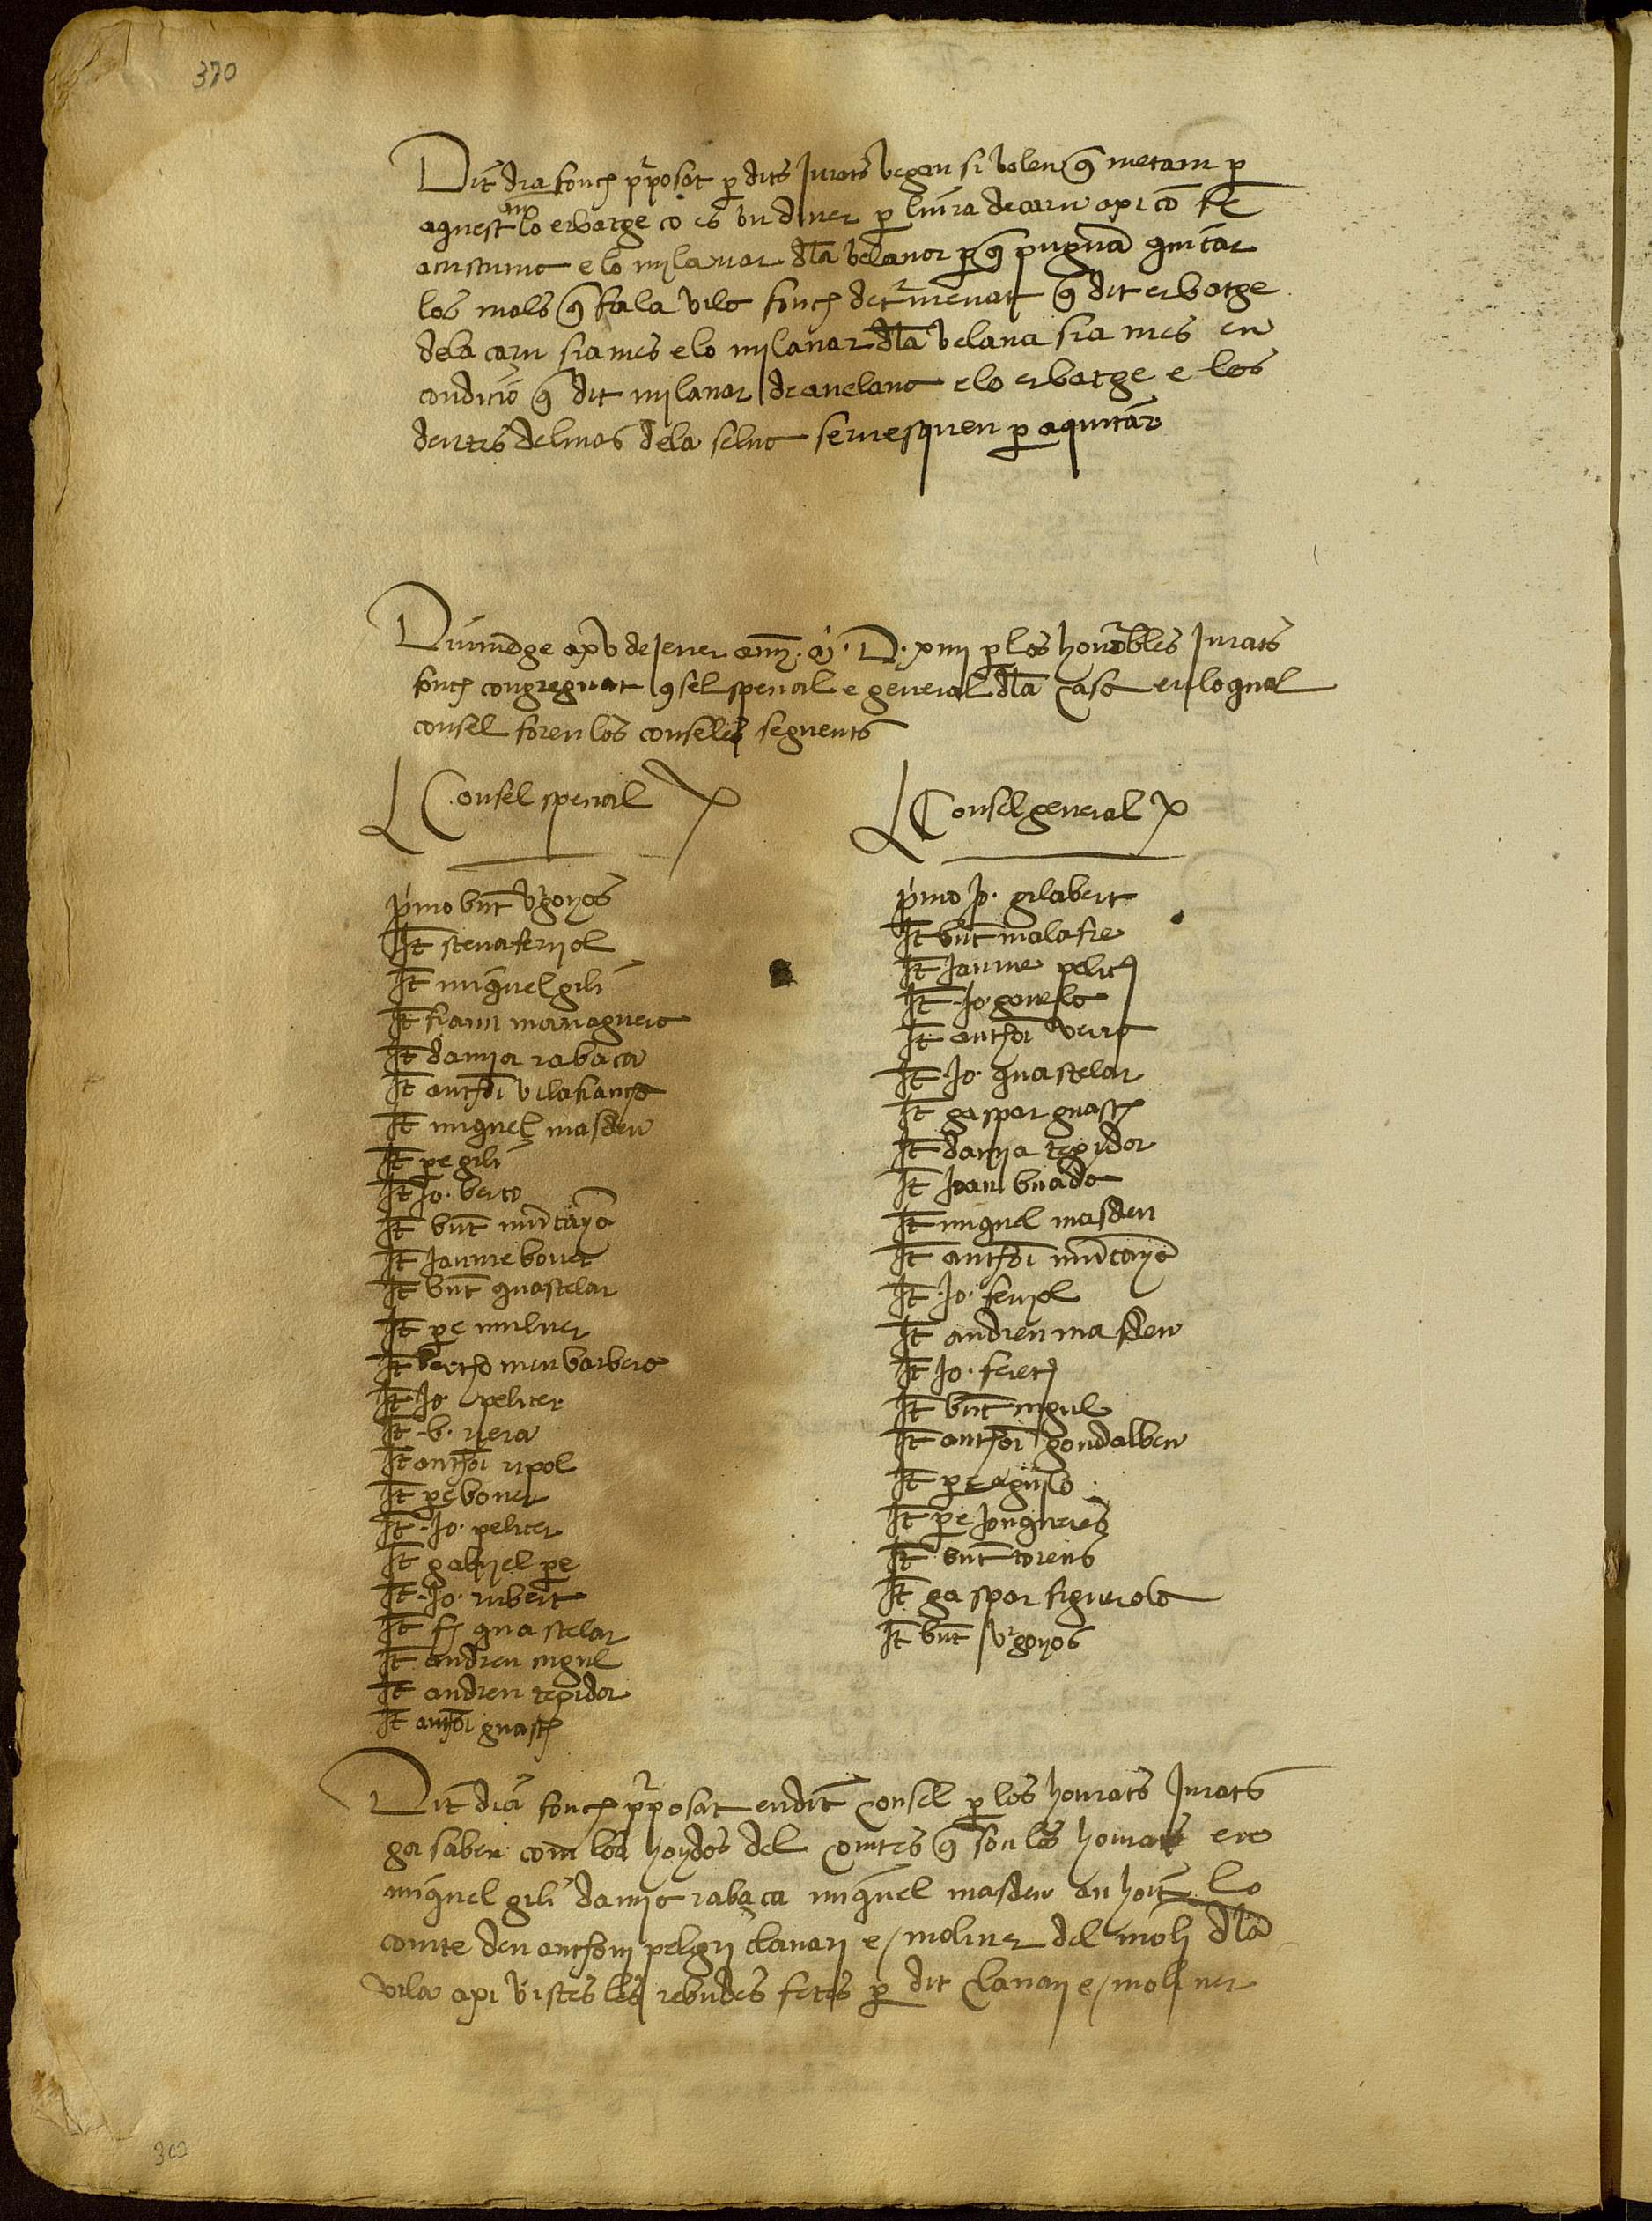 370
Dit dia fonch pposat p dits Jurats vegen si volen q metam p
aquest an lo erbatge ço es vn diner p liura de carn axi co se
acustuma e lo milanar dla velanar p q pugua quitar
los mals q fa la vila fonch determenat q dit erbatge
dela carn sia mes e lo milanar dla velana sia mes en
condicio q dit milanar de auelana e lo erbatge e los
deutes delmas dela selua seruesquen p aquitar
Diumege a xv de Jener any M D xiiii p los honorables Jurats
fonch congreguat qsel special e general dla casa en lo qual
consel foren los conselés seguents
Consel special
pimo bnt vrgoyos
It steua feriol
It miquel gili
It franci marraguera
It damia rabaça
It anthoi vilafranca
It miquel masdeu
It pe gili
It Jo. berto
It bnt mutaya
It Jaume bouer
It bnt quastelar
It pe muluer
It berthomeu barbera
It Jo peliter
It b. riera
It anthoi ripol
It pe bouer
It Jo. peliter
It gabriel pe
It Jo. rubert
It f quastelar
It andreu mgul
It andreu texidor
It anthoi guasch
Consel general
pimo Jo. gilabert
It bnt malafre
It Jaume pelicer
It Jo. gonela
It anthoi verra
It Jo. quastelar
It gaspar guasch
It damia texidor
It Joan buada
It miquel masdeu
It anthoi mutaya
It Jo. feriol
It andreu masdeu
It Jo. ferer
It bnt mgul
It anthoi gondalbeu
It pe aguilo
It pe Jonqueres
It bnt torens
It gaspar figuerola
It bnt vrgoyos
Dit dia fonch pposat en dit consel p los honrats Jurats
ça saber com los hoydos del comtes q son los honrats en
miquel gili damia rabaça miquel masdeu an hoit lo
comte den anthoni pelgri clauari e moliner del moli dla
vila axi vistes les rebudes fetes p dit clauari e moliner
300